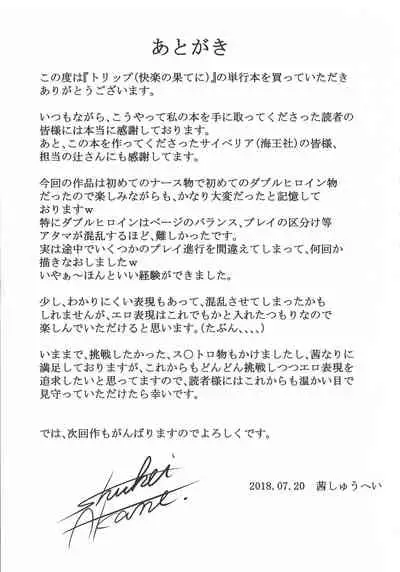 あとがき
この度は『トリップ(快楽の果てに)』の単行本を買っていただき
ありがとうございます。
いつもながら、こうやって私の本を手に取ってくださった読者の
皆様には本当に感謝しております。
あと、この本を作ってくださったサイベリア(海王社)の皆様、
担当の辻さんにも感謝してます。
今回の作品は初めてのナース物で初めてのダブルヒロイン物
だったので楽しみながらも、かなり大変だったと記憶して
おりますｗ
特にダブルヒロインはページのバランス、プレイの区分け等
アタマが混乱するほど、難しかったです。
実は途中でいくつかのプレイ進行を間違えてしまって、何回か
描きなおしましたｗ
いやぁ～ほんといい経験ができました。
少し、わかりにくい表現もあって、混乱させてしまったかも
しれませんが、エロ表現はこれでもかと入れたつもりなので
楽しんでいただけると思います。(たぶん、、、、)
いままで、挑戦したかった、ス〇トロ物もかけましたし、茜なりに
満足しておりますが、これからもどんどん挑戦しつつエロ表現を
追求したいと思ってますので、読者様にはこれからも温かい目で
見守っていただけたら幸いです。
では、次回作もがんばりますのでよろしくです。
Shuhei
Akane.
2018.07.20 茜しゅうへい